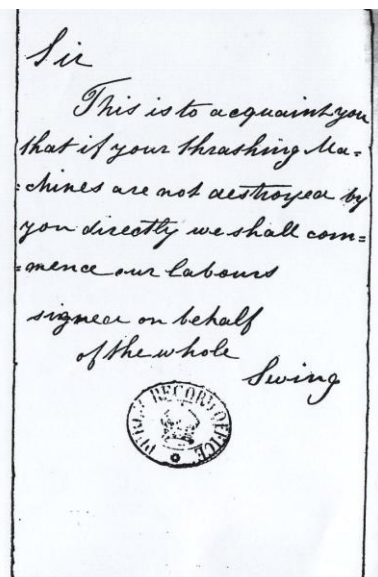 Sir
This is to acquaint you
that if your thrashing Ma=
=chines are not destroyed by
you directly we shall com=
=mence our labours
signed on behalf
of the whole
Swing
PUBLIC RECORD OFFICE